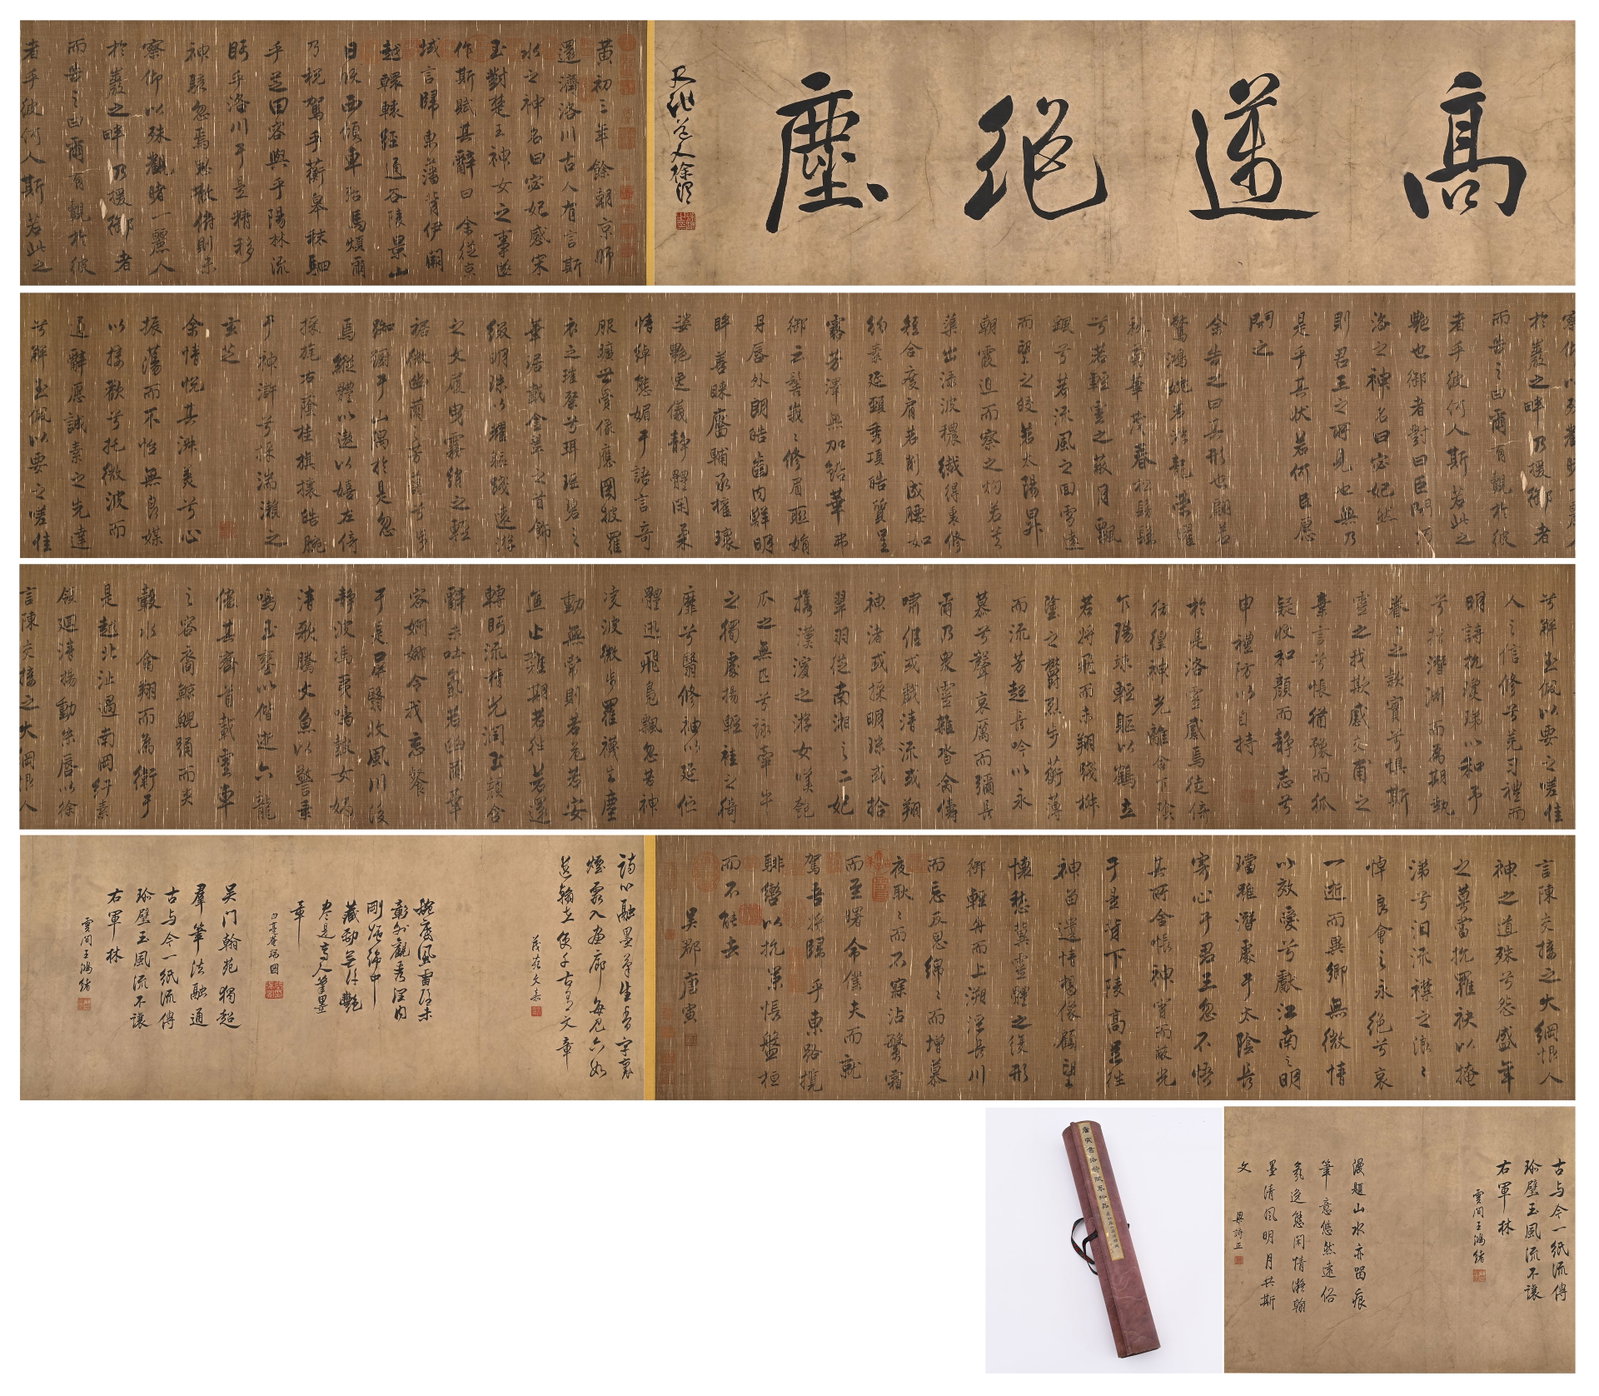 高邁絕塵
天池道人徐渭
黃初三年餘朝京師
還濟洛川古人有言斯
水之神名曰宓妃感宋
玉對楚王神女之事遂
作斯賦其辭曰余從京
域言歸東藩背伊闕
越轘轅經通谷陵景山
日既西傾車殆馬煩爾
乃稅駕乎蘅皋秣駟
乎芝田容與乎陽林流
眄乎洛川于是精移
神駭忽焉思散俯則未
察仰以殊觀睹一麗人
於巖之畔乃援御者
而告之曰爾有覿於彼
者乎彼何人斯若此之
察仰以殊觀睹一麗人
於巖之畔乃援御者
而告之曰爾有覿於彼
者乎彼何人斯若此之
艷也御者對曰臣聞河
洛之神名曰宓妃然
則君王之所見也無乃
是乎其狀若何臣願
聞之
余告之曰其形也翩若
驚鴻婉若游龍榮曜
秋菊華茂春松髣髴
兮若輕雲之蔽月飄
飖兮若流風之回雪遠
而望之皎若太陽昇
朝霞迫而察之灼若芙
蕖出淥波穠纖得衷修
短合度肩若削成腰如
約素延頸秀項皓質呈
露芳澤無加鉛華弗
御雲髻峩々修眉聯娟
丹唇外朗皓齒內鮮明
眸善睞靨輔承權瓌
姿艷逸儀靜體閑柔
情綽態媚于語言奇
服曠世骨像應圖披羅
衣之璀粲兮珥瑤碧之
華琚戴金翠之首飾
綴明珠以耀軀踐遠游
之文履曳霧綃之輕
裾微幽蘭之芳藹兮步
踟躕于山隅於是忽
焉縱體以遨以嬉左倚
採旄右蔭桂旗攘皓腕
于神滸兮採湍瀨之
玄芝
余情悅其淑美兮心
振蕩而不怡無良媒
以接歡兮托微波而
通辭願誠素之先達
兮解玉佩以要之嗟佳
兮解玉佩以要之嗟佳
人之信修兮羌習禮而
明詩抗瓊珶以和予
兮指潛淵而為期執
眷之款實兮懼斯
靈之我欺感交甫之
棄言兮悵猶豫而狐
疑收和顏而靜志兮
申禮防以自持
於是洛靈感焉徙倚
彷徨神光離合乍陰
乍陽竦輕軀以鶴立
若將飛而未翔踐椒
塗之郁烈步蘅薄
而流芳超長吟以永
慕兮聲哀厲而彌長
爾乃眾靈雜沓命儔
嘯侶或戲清流或翔
神渚或採明珠或拾
翠羽從南湘之二妃
攜漢濱之游女嘆匏
瓜之無匹兮詠牽牛
之獨處揚輕袿之猗
靡兮翳修袖以延佇
體迅飛鳧飄忽若神
凌波微步羅襪生塵
動無常則若危若安
進止難期若往若還
轉眄流精光潤玉顏含
辭未吐氣若幽蘭華
容婀娜令我忘餐
于是屏翳收風川後
靜波馮夷鳴鼓女媧
清歌騰文魚以警乘
鳴玉鑾以偕逝六龍
儼其齊首載雲車
之容裔鯨鯢踴而夾
轂水禽翔而為衛于
是越北沚過南岡紆素
領迴清揚動朱唇以徐
言陳交接之大綱恨人
言陳交接之大綱恨人
神之道殊兮怨盛年
之莫當抗羅袂以掩
涕兮淚流襟之浪々
悼良會之永絕兮哀
一逝而異鄉無微情
以效愛兮獻江南之明
璫雖潛處于太陰長
寄心于君王忽不悟
其所舍悵神宵而蔽光
于是背下陵高足往
神留遺情想像顧望
懷愁冀靈體之復形
御輕舟而上溯浮長川
而忘反思綿々而增慕
夜耿々而不寐沾繁霜
而至曙命僕夫而就
駕吾將歸乎東路攬
騑轡以抗策悵盤桓
而不能去
吳郡唐寅
詩心融墨筆生香字裏
煙霞入画廊每見六如
遺翰在千古文章
茂苑文嘉
剛
藏勁
盡是高人筆墨
章
吴门翰苑獨超
羣筆法融通
古与今一紙流傳
珍璧玉風流不讓
右軍林
雲间王鴻緒
古与今一紙流傳
珍璧玉風流不讓
右軍林
雲间王鴻緒
漫題山水亦留痕
筆意悠然遠俗
氛逸態闲情凝翰
墨清風明月共斯
文
梁詩正